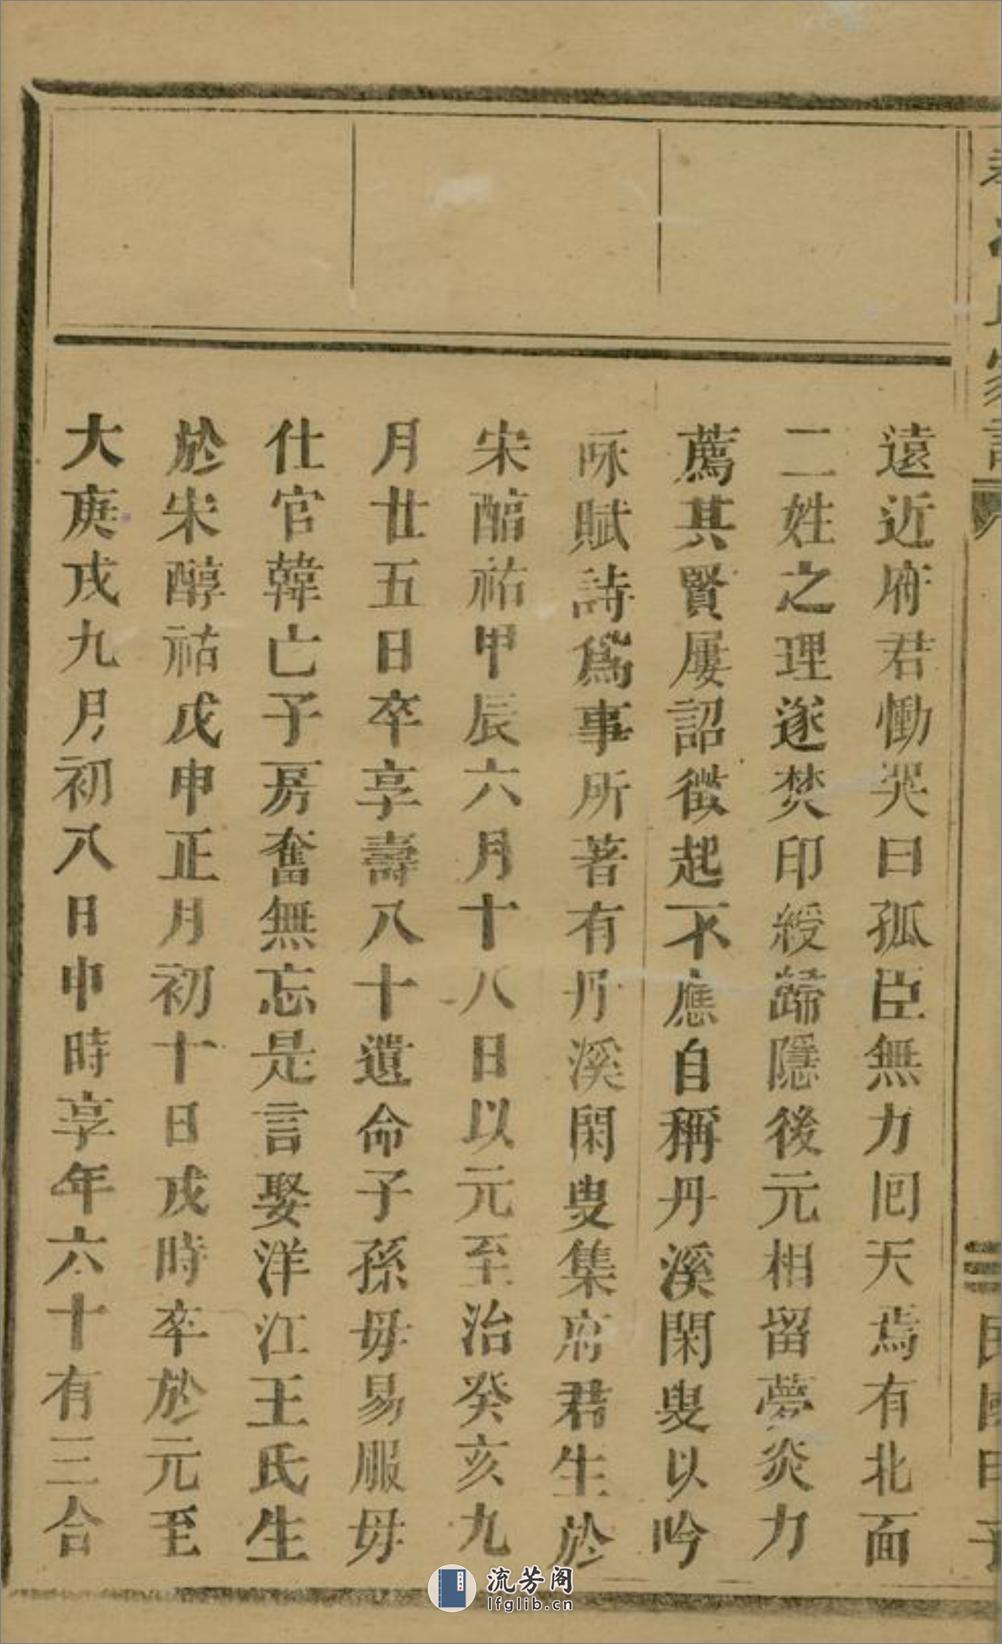 遠近府君慟哭曰孤臣無力囘天焉有北面
二姓之理遂焚印綬歸隱後元相留夢炎力
薦其賢屢詔徵起不應自稱丹溪閑叟以吟
咏賦詩爲事所著有丹溪閑叟集府君生於
宋醕祐甲辰六月十八日以元至治癸亥九
月廿五日卒享壽八十遺命子孫毋易服毋
仕官韓亡子房奮無忘是言娶洋江王氏生
於宋醇祐戊申正月初十日戌時卒於元至
大庚戌九月初八日申時享年六十有三合
流芳阁
lfglib.cn